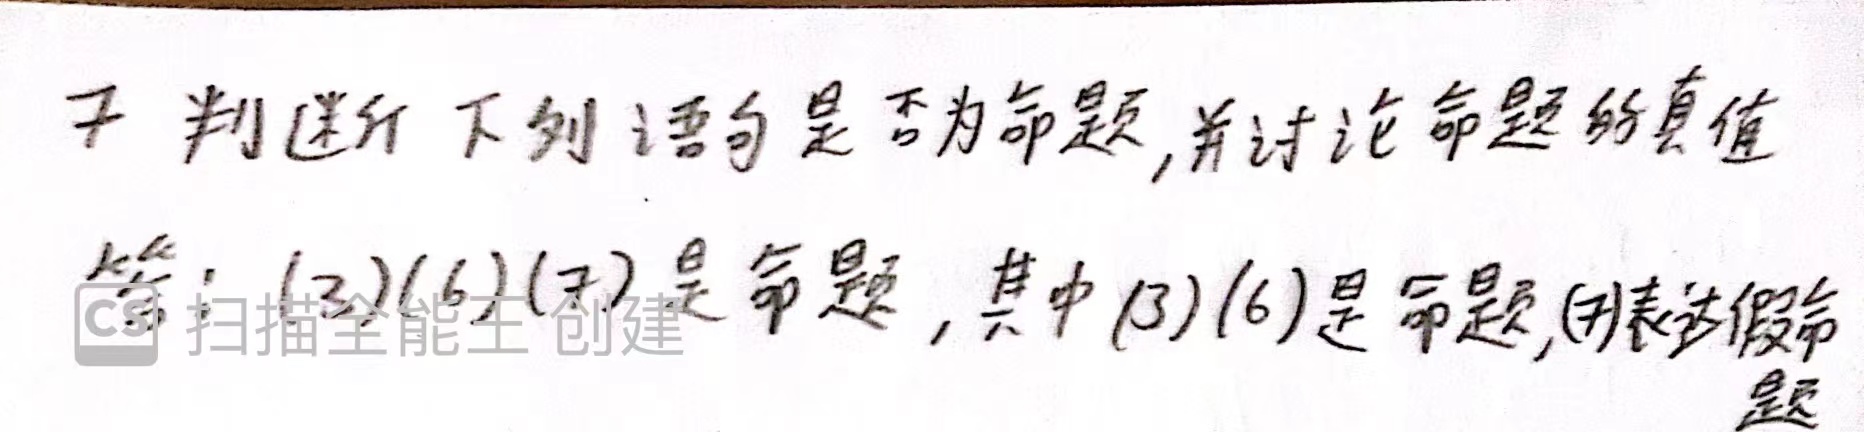 7 判断下列语句是否为命题,并讨论命题的真值
答:(3)(6)(7)是命题,其中(3)(6)是命题,(7)表达假命
题
CS 扫描全能王 创建